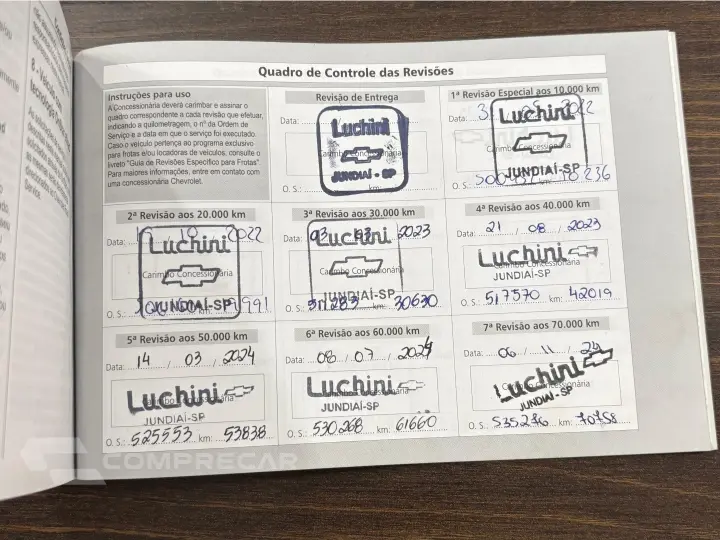 Quadro de Controle das Revisões
Instruções para uso
A Concessionária deverá carimbar e assinar o
quadro correspondente a cada revisão que efetuar,
indicando a quilometragem, o nº da Ordem de
Serviço e a data em que o serviço foi executado.
Caso o veículo pertença ao programa exclusivo
para frotas e/ou locadoras de veículos, consulte o
livreto "Guia de Revisões Específico para Frotas".
Para maiores informações, entre em contato com
uma concessionária Chevrolet.
Revisão de Entrega
Data:
Luchini
Carimbo Concessionária
JUNDIAÍ-SP
O. S.: km:
1ª Revisão Especial aos 10.000 km
Data: 2022
Luchini
Carimbo Concessionária
JUNDIAÍ-SP
O. S.: 10236
2ª Revisão aos 20.000 km
Data: 10 2022
Luchini
Carimbo Concessionária
JUNDIAÍ-SP
O. S.:
3ª Revisão aos 30.000 km
Data: 03 03 2023
Luchini
Carimbo Concessionária
JUNDIAÍ-SP
O. S.: 511283 30630
4ª Revisão aos 40.000 km
Data: 21 / 08 / 2023
Luchini
Carimbo Concessionária
JUNDIAÍ-SP
O. S.: 517570 km: 42019
5ª Revisão aos 50.000 km
Data: 14 / 03 / 2024
Luchini
Carimbo Concessionária
JUNDIAÍ-SP
O. S.: 525553 km: 53838
6ª Revisão aos 60.000 km
Data: 08 / 07 / 2024
Luchini
Carimbo Concessionária
JUNDIAÍ-SP
O. S.: 530268 km: 61660
7ª Revisão aos 70.000 km
Data: 06 / 11 / 24
Luchini
Carimbo Concessionária
JUNDIAÍ-SP
O. S.: 535276 km: 70758
COMPRECAR